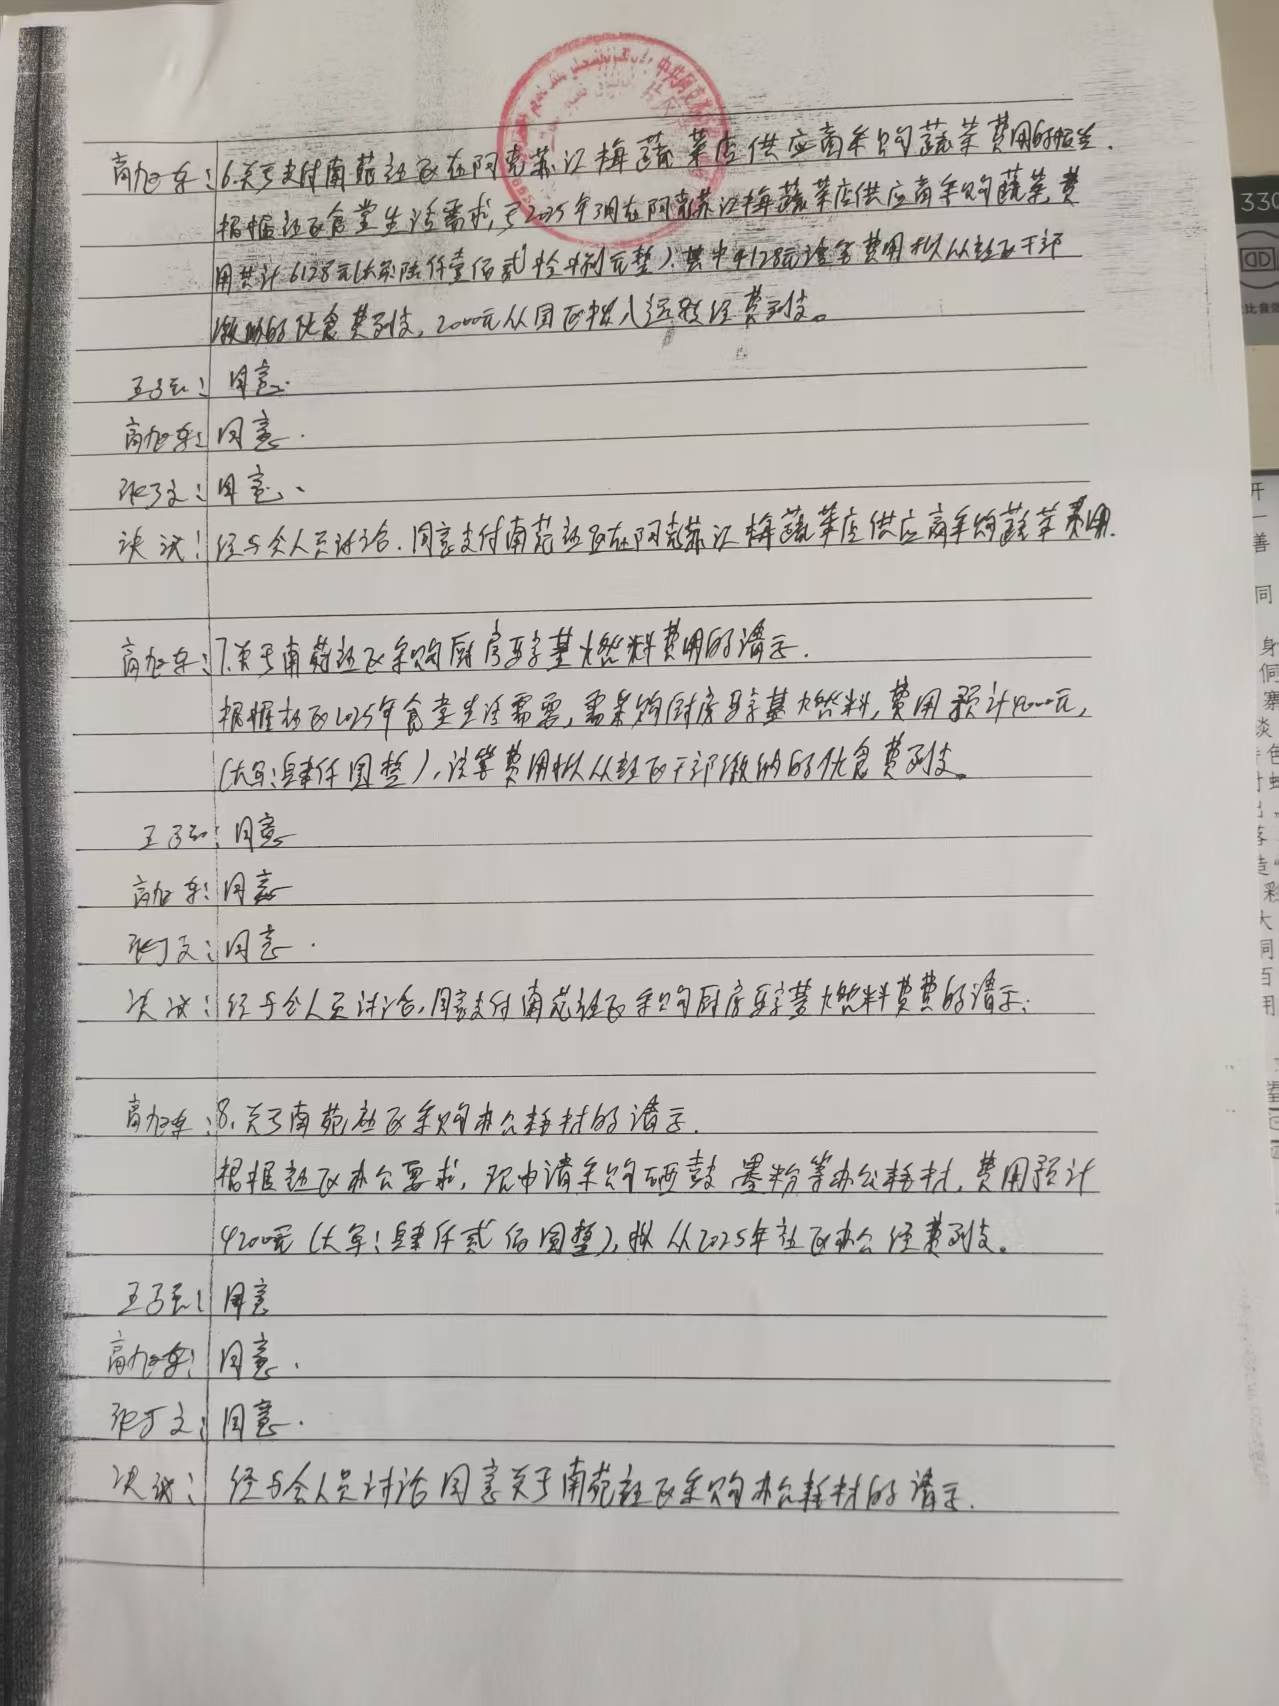 中共阿克苏
高旭东：6.关于支付南苑社区在阿克苏江梅蔬菜店供应商采购蔬菜费用的报告.
根据社区食堂生活需求，于2025年3月在阿克苏江梅蔬菜店供应商采购蔬菜,费
用共计6128元(大写:陆仟壹佰贰拾捌元整).其中4128元该笔费用拟从社区干部
缴纳的伙食费列支，2000元从园区拨入运转经费列支。
同意.
高旭东：同意.
同意.
决议：经与会人员讨论.同意支付南苑社区在阿克苏江梅蔬菜店供应商采购蔬菜费用.
高旭东：7.关于南苑社区采购厨房 燃料费用的请示.
根据社区2025年食堂生活需要，需采购厨房 燃料，费用预计4000元，
(大写:肆仟圆整)，该笔费用拟从社区干部缴纳的伙食费列支。
同意
高旭东：同意
同意.
决议：经与会人员讨论，同意支付南苑社区采购厨房 燃料费费的请示.
高旭东：8.关于南苑社区采购办公耗材的请示.
根据社区办公要求，现申请采购硒鼓 墨粉等办公耗材，费用预计
4200元(大写:肆仟贰佰圆整)，拟从2025年社区办公经费列支。
同意
高旭东：同意.
同意.
决议：经与会人员讨论同意关于南苑社区采购办公耗材的请示.
330